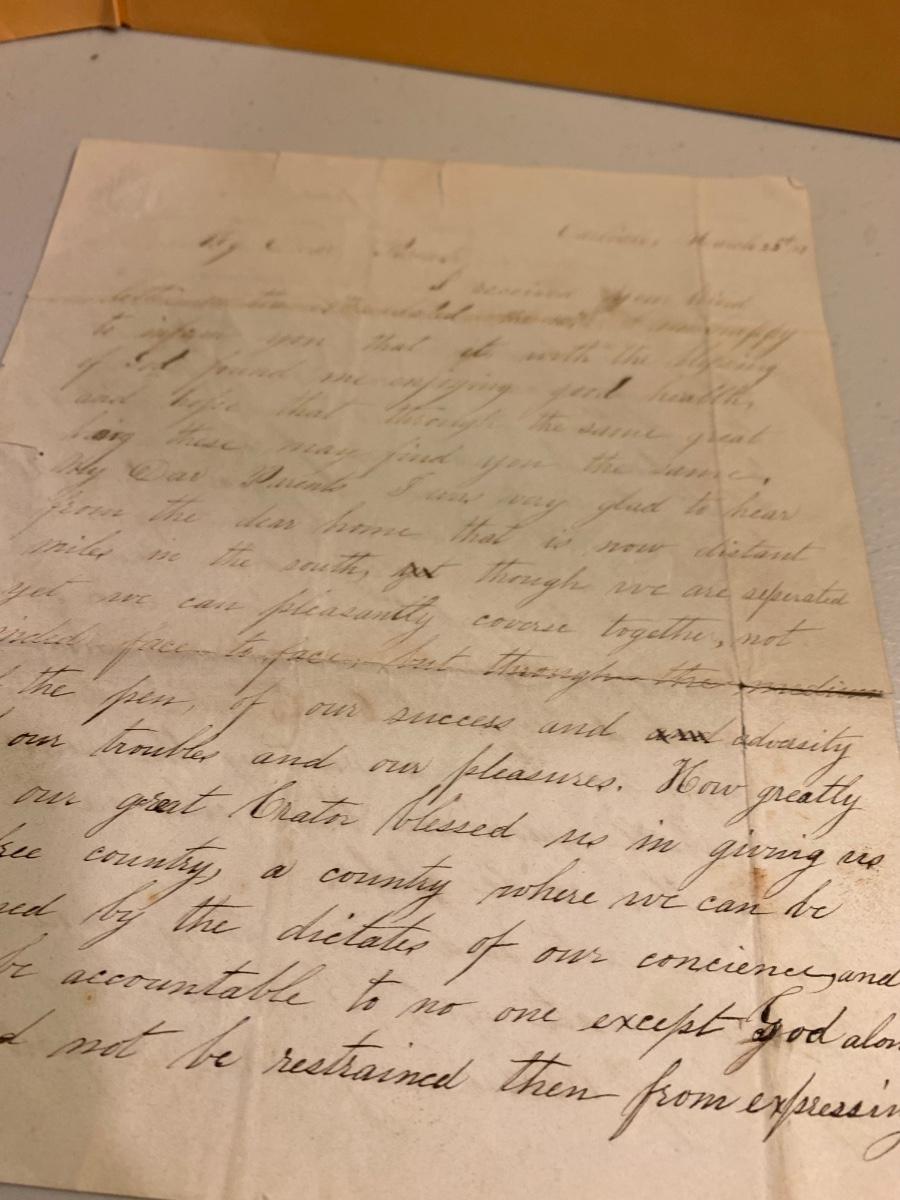 March 25th
My Dear
I received your kind
happy
to inform you that it with the blessing
of God found me enjoying good health,
and hope that through the same great
being these may find you the same.
My Dear Parents I was very glad to hear
from the dear home that is now distant
miles in the south, though we are seperated
yet we can pleasantly coverse together, not
face to face, but through the medium
the pen, of our success and adversity
our troubles and our pleasures. How greatly
our great Crator blessed us in giving us
country, a country where we can be
by the dictates of our concience, and
be accountable to no one except God
not be restrained then from